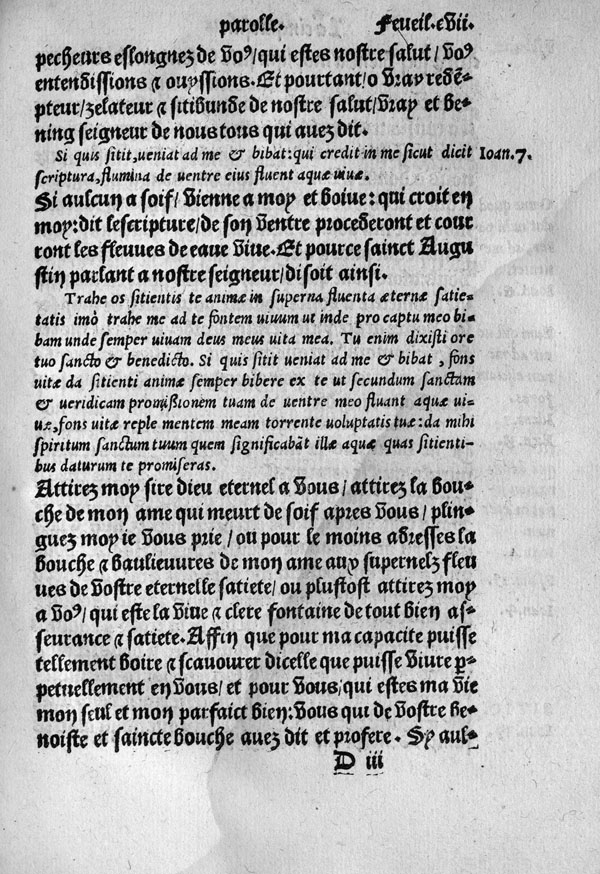 parolle. Feueil. cvii.
pecheurs eslongnez de voꝰ/ qui estes nostre salut/ voꝰ
entendissions ⁊ ouyssions. Et pourtant/ o vray redē-
pteur/ zelateur ⁊ sitibunde de nostre salut/ vray et be-
ning seigneur de nous tous qui auez dit.
Si quis sitit, ueniat ad me & bibat: qui credit in me sicut dicit Ioan. 7.
scriptura, flumina de uentre eius fluent aquæ uiuæ.
Si aulcun a soif/ vienne a moy et boiue: qui croit en
moy: dit lescripture/ de son ventre procederont et cour
ront les fleuues de eaue viue. Et pource sainct Augu
stin parlant a nostre seigneur/ disoit ainsi.
Trahe os sitientis te animæ in superna fluenta æternæ satie-
tatis imò trahe me ad te fontem uiuum ut inde pro captu meo bi-
bam unde semper uiuam deus meus uita mea. Tu enim dixisti ore
tuo sancto & benedicto. Si quis sitit ueniat ad me & bibat, fons
uitæ da sitienti animæ semper bibere ex te ut secundum sanctam
& ueridicam promißionem tuam de uentre meo fluant aquæ ui-
uæ, fons uitæ reple mentem meam torrente uoluptatis tuæ: da mihi
spiritum sanctum tuum quem significabāt illæ aquæ quas sitienti-
bus daturum te promiseras.
Attirez moy sire dieu eternel a vous/ attirez la bou-
che de mon ame qui meurt de soif apres vous/ plin-
guez moy ie vous prie/ ou pour le moins adresses la
bouche ⁊ baulieuures de mon ame auy supernelz fleu
ues de vostre eternelle satiete/ ou plustost attirez moy
a voꝰ/ qui este la viue ⁊ clere fontaine de tout bien as-
seurance ⁊ satiete. Affin que pour ma capacite puisse
tellement boire ⁊ scauourer dicelle que puisse viure ꝑ-
petuellement en vous/ et pour vous/ qui estes ma vie
mon seul et mon parfaict bien: vous qui de vostre be-
noiste et saincte bouche auez dit et profere. Sy aul-
D iii